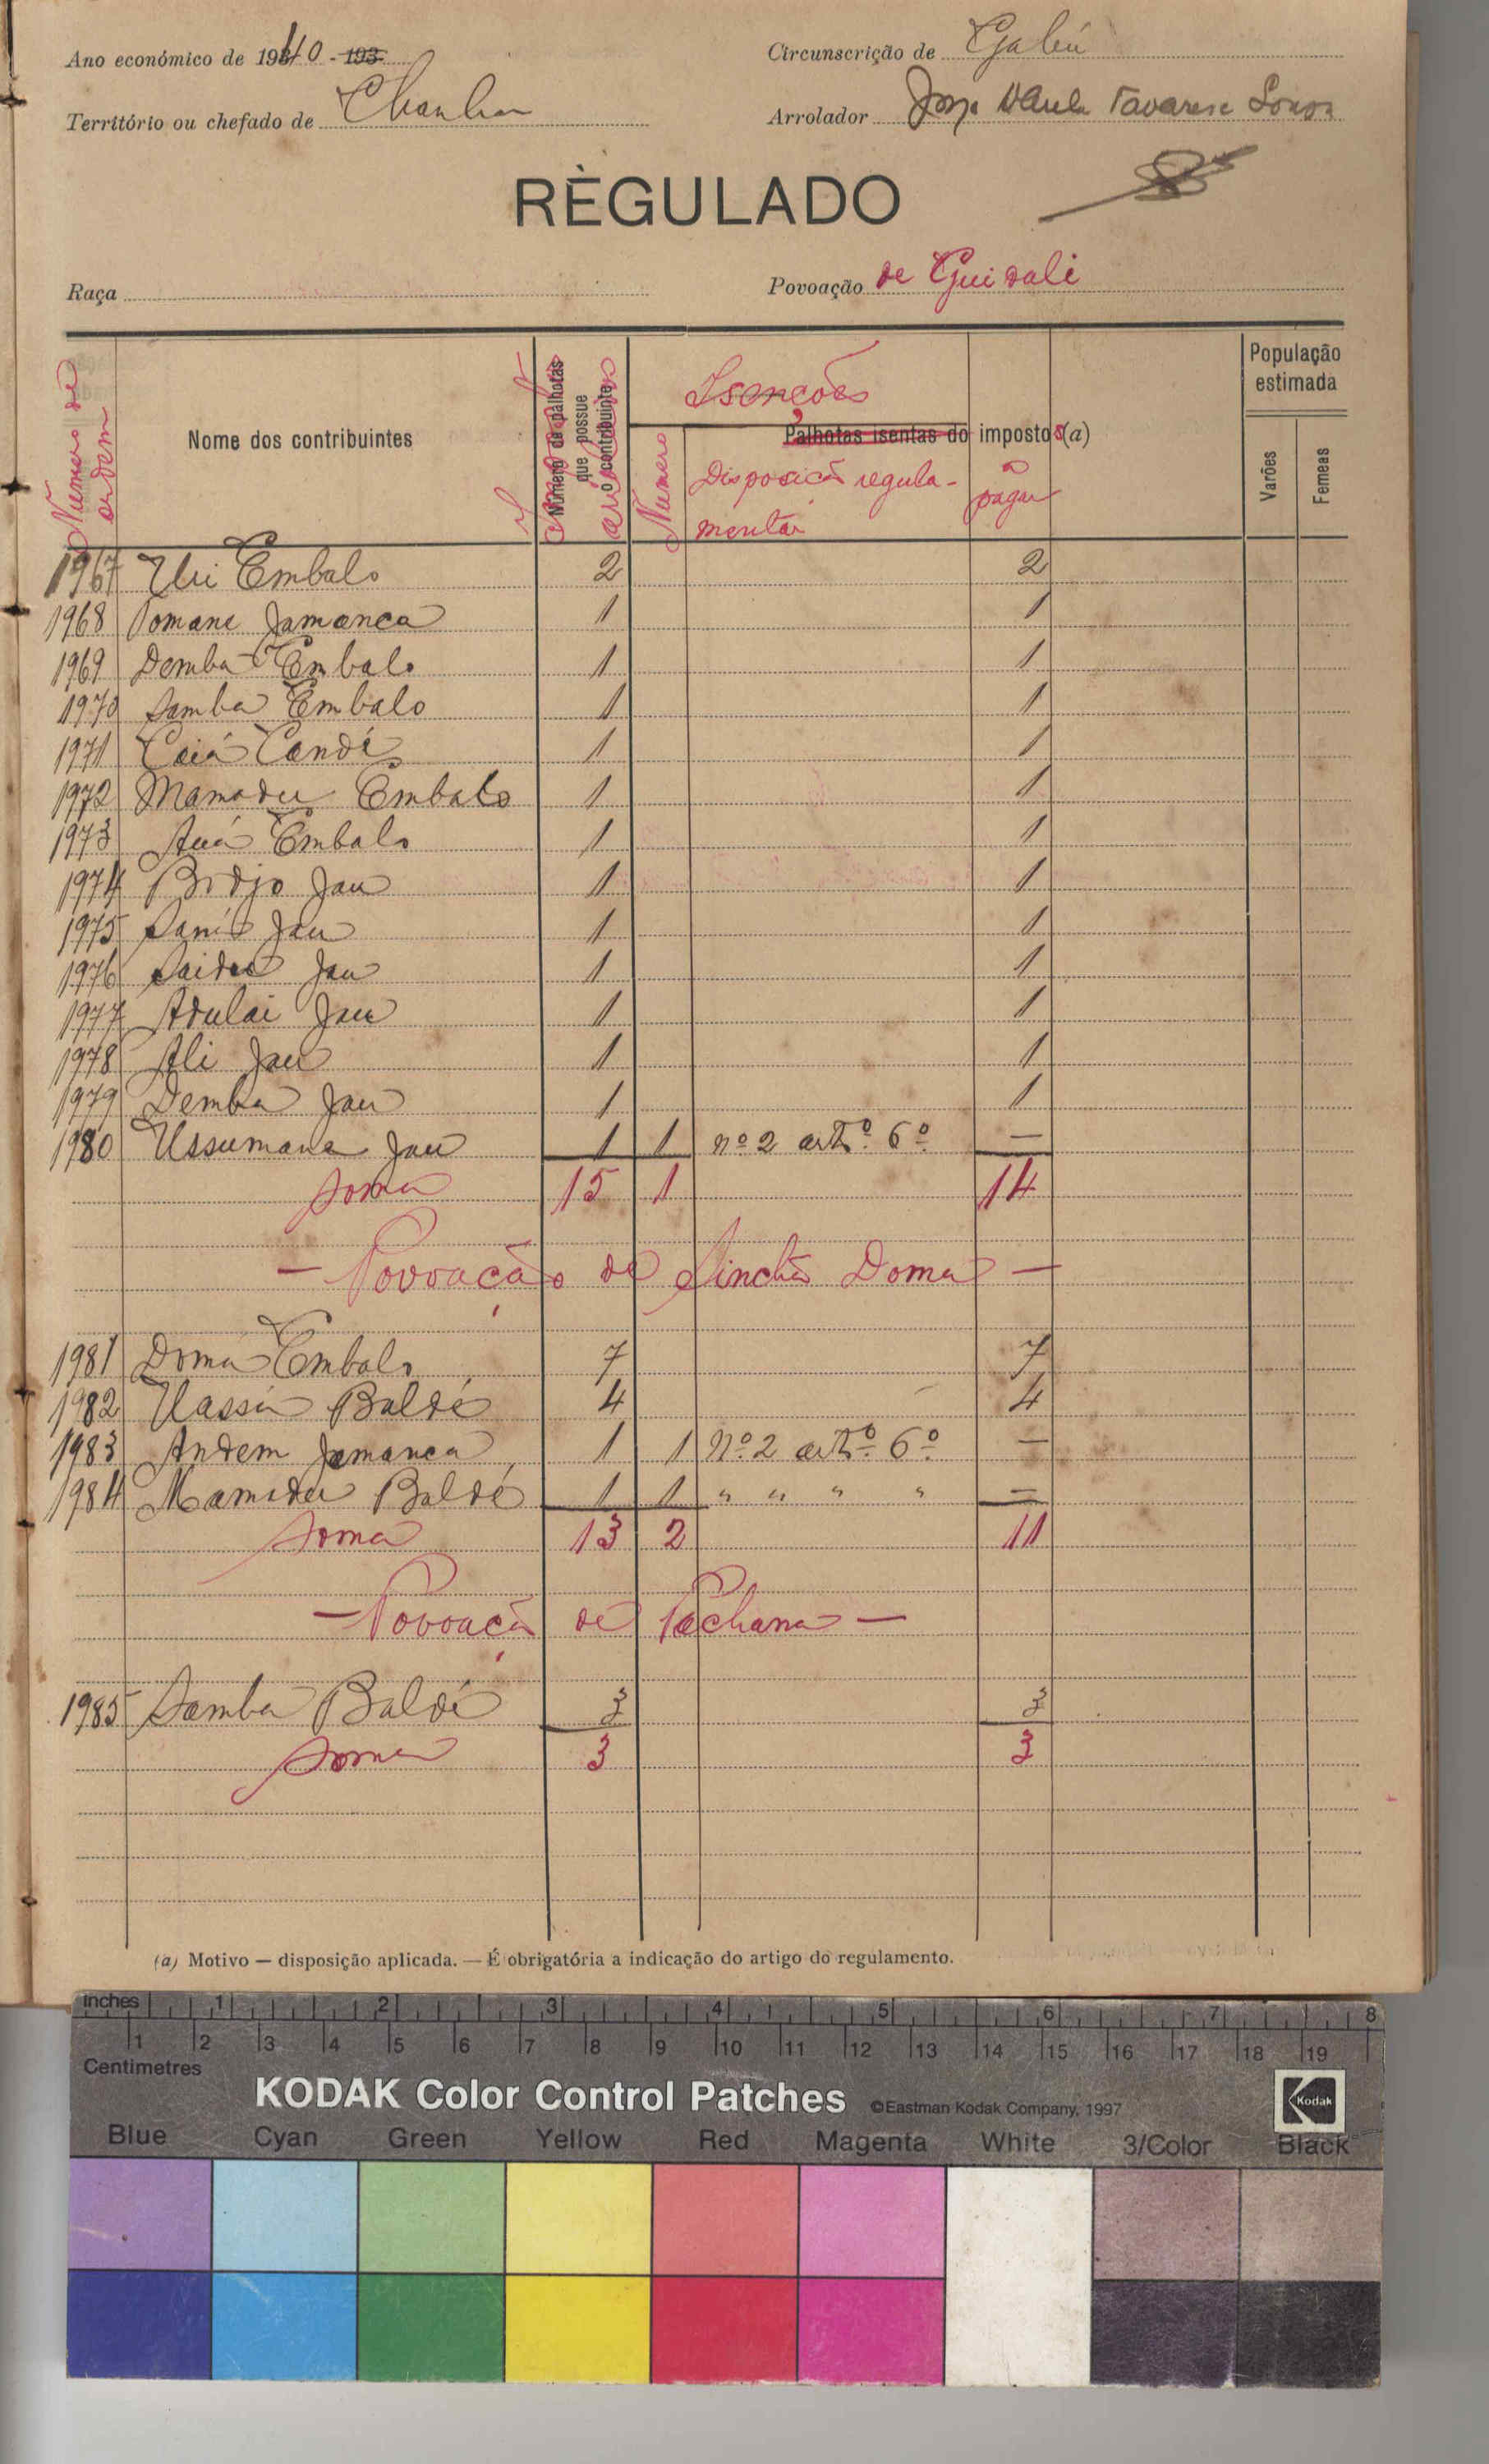 Ano económico de 1940 - 193
Circunscrição de Gabú
Território ou chefado de Chanha
Arrolador Tavares
RÈGULADO
Raça
Povoação de Guidali
Numero de ordem
Nome dos contribuintes
Número de palhotas que possue o contribuinte
Isenções
Palhotas isentas do impostos (a)
Numero
Disposição regulamentar
a pagar
População estimada
Varões
Femeas
1967 Uri Embalo 2 2
1968 Jamanca 1 1
1969 Demba Embalo 1 1
1970 Samba Embalo 1 1
1971 Caiá Candé 1 1
1972 Mamadu Embalo 1 1
1973 Auá Embalo 1 1
1974 Bodjo Jau 1 1
1975 Jau 1 1
1976 Saido Jau 1 1
1977 Adulai Jau 1 1
1978 Ali Jau 1 1
1979 Demba Jau 1 1
1980 Ussumane Jau 1 1 nº 2 artº 6º —
Soma 15 1 14
— Povoação de Sinchã Doma —
1981 Doma Embalo 7 7
1982 Baldé 4 4
1983 Andem Jamanca 1 1 Nº 2 artº 6º —
1984 Mamadu Baldé 1 1 " " " " —
Soma 13 2 11
— Povoação de Pachana —
1985 Samba Baldé 3 3
Soma 3 3
(a) Motivo — disposição aplicada. — É obrigatória a indicação do artigo do regulamento.
inches 1 2 3 4 5 6 7 8
1 2 3 4 5 6 7 8 9 10 11 12 13 14 15 16 17 18 19
Centimetres
KODAK Color Control Patches ©Eastman Kodak Company, 1997
Kodak
Blue Cyan Green Yellow Red Magenta White 3/Color Black